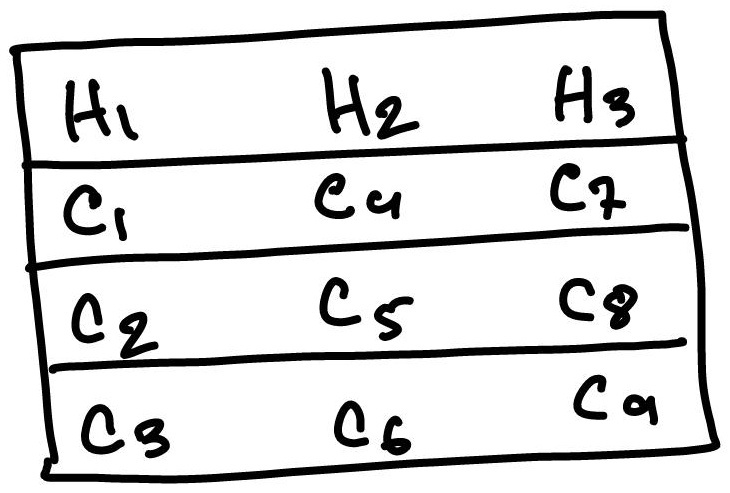 H1 H2 H3
C1 C4 C7
C2 C5 C8
C3 C6 C9